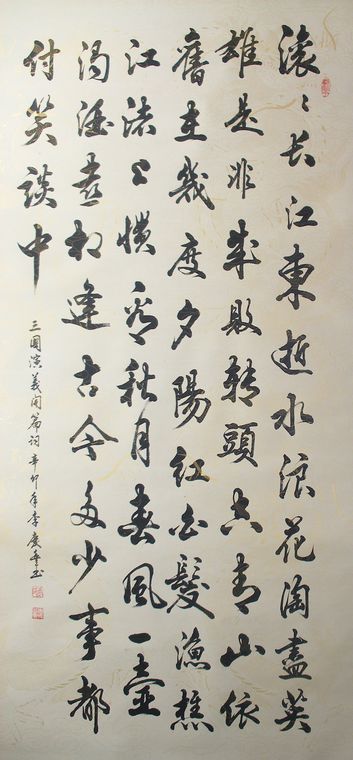 滚滚长江東逝水浪花淘盡英
雄是非成敗轉頭空青山依
舊在幾度夕陽紅白髮漁樵
江渚上慣看秋月春風一壺
濁酒喜相逢古今多少事都
付笑談中
三國演義開篇词辛卯年李書